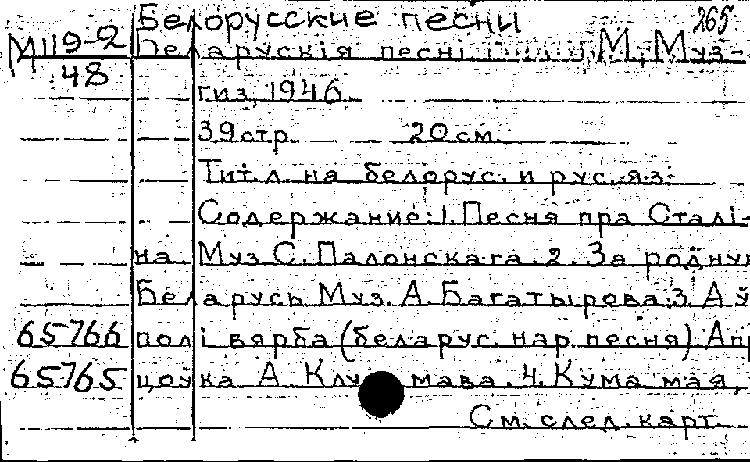 Белорусские песни 265
М119-2 Беларускія песні М., Муз-
48 гиз, 1946.
39 стр. 20 см.
Тит. л. на белорус. и рус. яз:
Содержание: 1. Песня пра Сталі-
на Муз С. Палонскага. 2. За родную
Беларусь Муз. А. Багатырова. 3. А ў
65766 полі вярба (беларус. нар. песня) Апр
65765 цоўка А. мава. 4. Кума мая,
См. след. карт.